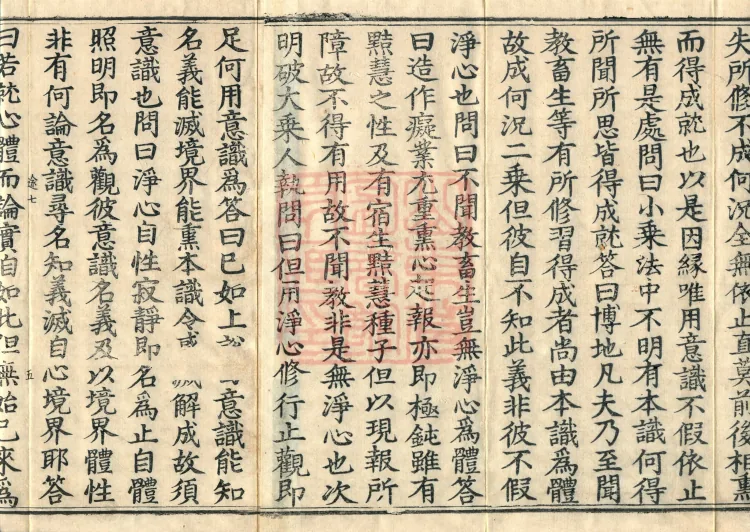 失所修不成何況全無依止直莫前後相熏
而得成就也以是因緣唯用意識不假依止
無有是處問曰小乘法中不明有本識何得
所聞所思皆得成就答曰博地凡夫乃至聞
教畜生等有所修習得成者尚由本識爲體
故成何況二乘但彼自不知此義非彼不假
淨心也問曰不聞教畜生豈無淨心爲體答
曰造作癡業尤重熏心起報亦即極鈍雖有
黠慧之性及有宿生黠慧種子但以現報所
障故不得有用故不聞教非是無淨心也次
明破大乘人執問曰但用淨心修行止觀即
足何用意識爲答曰已如上 意識能知
名義能滅境界能熏本識令 解成故須
意識也問曰淨心自性寂靜即名爲止自體
照明即名爲觀彼意識名義及以境界體性
非有何論意識尋名知義滅自心境界耶答
途七 五
曰若就心體而論實自如此但無始已來爲